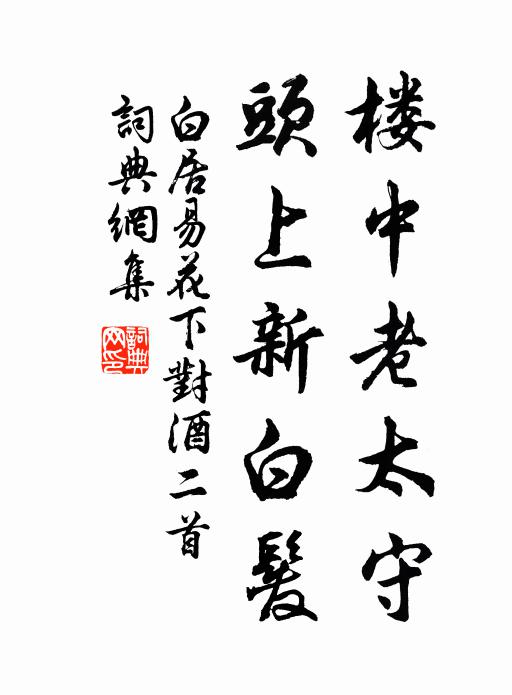 楼中老太守
頭上新白髮
白居易花下對酒二首
詞典網集
詞典网印